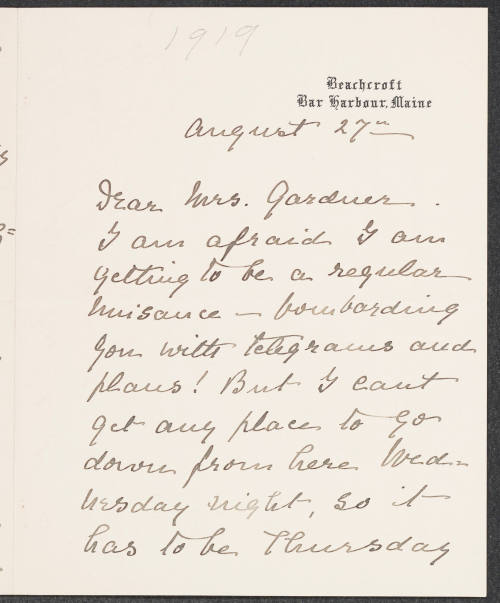 1919
Beachcroft
Bar Harbour, Maine
August 27th
Dear Mrs. Gardner.
I am afraid I am
getting to be a regular
nuisance – bombarding
you with telegrams and
plans! But I cant
get any place to go
down from here Wed-
nesday night, so it
has to be Thursday